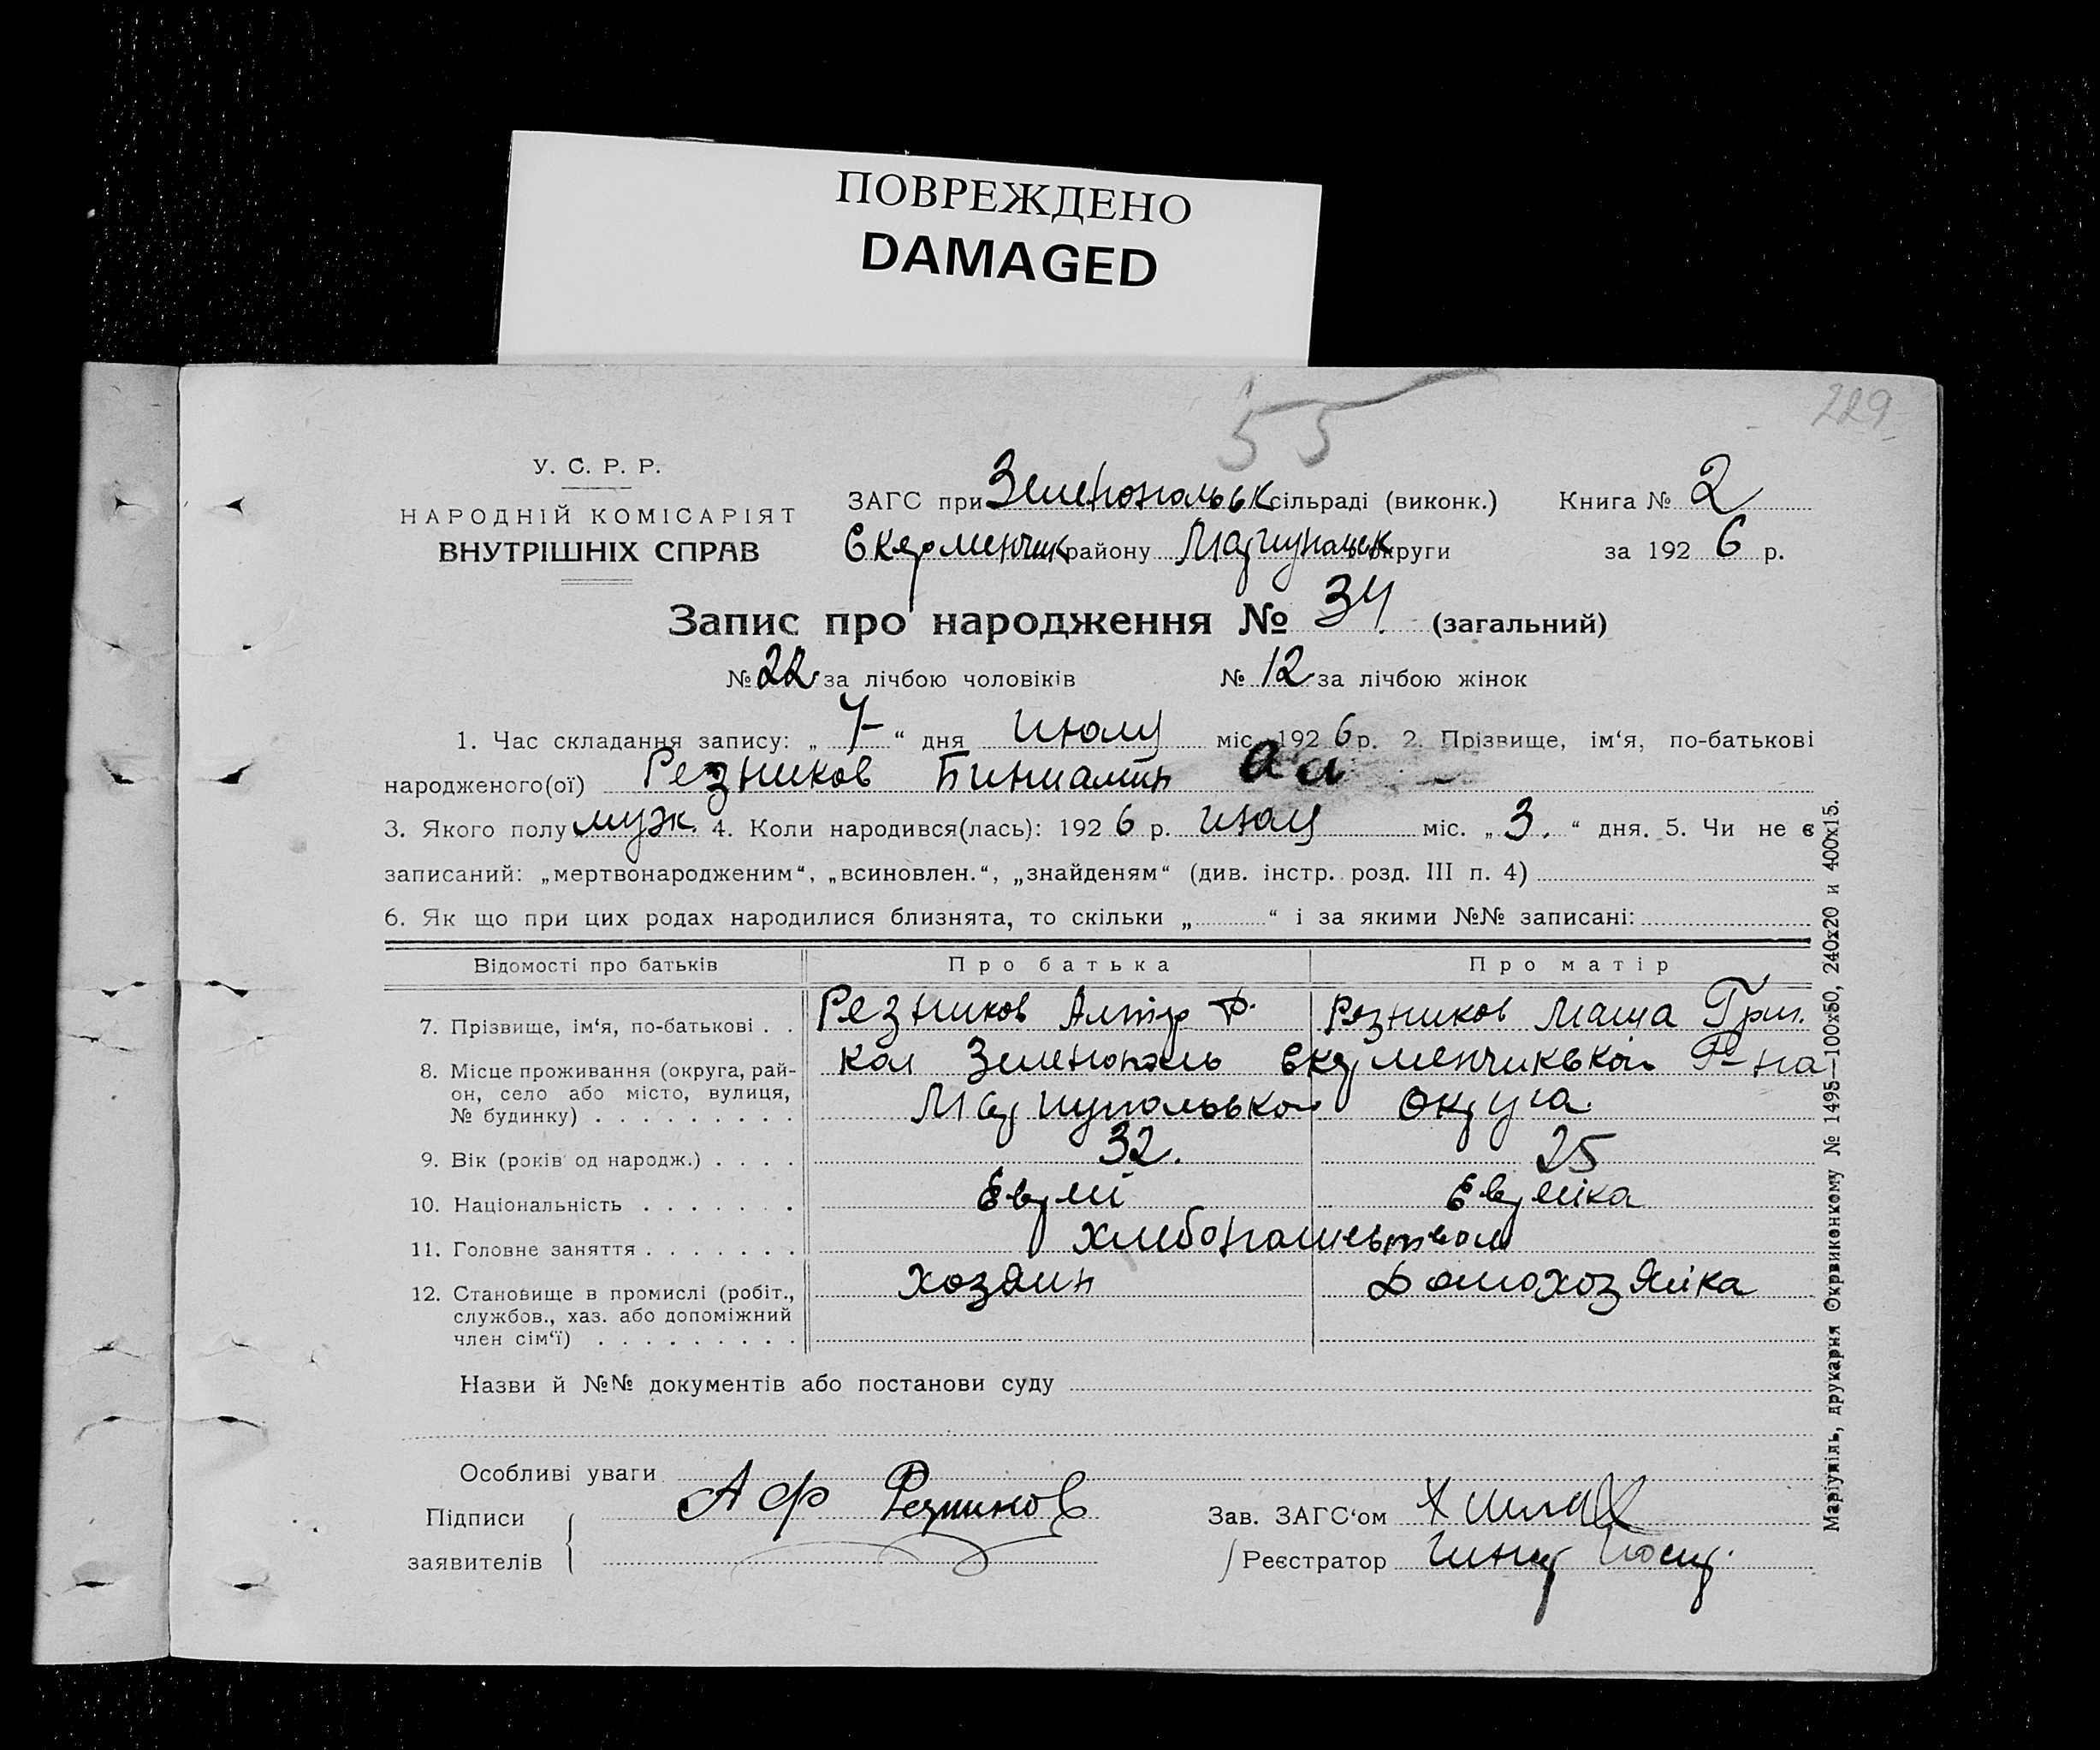 ПОВРЕЖДЕНО
DAMAGED
55
229
У. С. Р. Р.
НАРОДНІЙ КОМІСАРІЯТ
ВНУТРІШНІХ СПРАВ
ЗАГС при Зеленопольск сільраді (виконк.) Книга № 2
Екерменчик району Мариупольск округи за 1926 р.
Запис про народження № 34 (загальний)
№ 22 за лічбою чоловіків № 12 за лічбою жінок
1. Час складання запису: „ 7 “ дня июля міс. 1926 р. 2. Прізвище, ім‘я, по-батькові
народженого(ої) Резников Биниамин
3. Якого полу муж. 4. Коли народився(лась): 1926 р. июля міс. „ 3. “ дня. 5. Чи не є
записаний: „мертвонародженим“, „всиновлен.“, „знайденям“ (див. інстр. розд. III п. 4)
6. Як що при цих родах народилися близнята, то скільки „ “ і за якими №№ записані:
Відомості про батьків Про батька Про матір
7. Прізвище, ім‘я, по-батькові . . Резников Алтер Ф. Резников Маша Григ.
8. Місце проживання (округа, рай- Кол Зеленополь Екерменчикской Р-на
он, село або місто, вулиця,
№ будинку) . . . . . . . . . Мариупольской Округа.
9. Вік (років од народж.) . . . . 32. 25
10. Національність . . . . . . . Еврей Еврейка
11. Головне заняття . . . . . . . хлебопашеством
12. Становище в промислі (робіт., хозяин Домохозяйка
службов., хаз. або допоміжний
член сім‘ї) . . . . . . . . .
Назви й №№ документів або постанови суду
Особливі уваги
Підписи А Ф Резников Зав. ЗАГС‘ом
заявителів Реєстратор
Маріупіль, друкарня Окрвиконкому № 1495—100х50, 240х20 и 400х15.